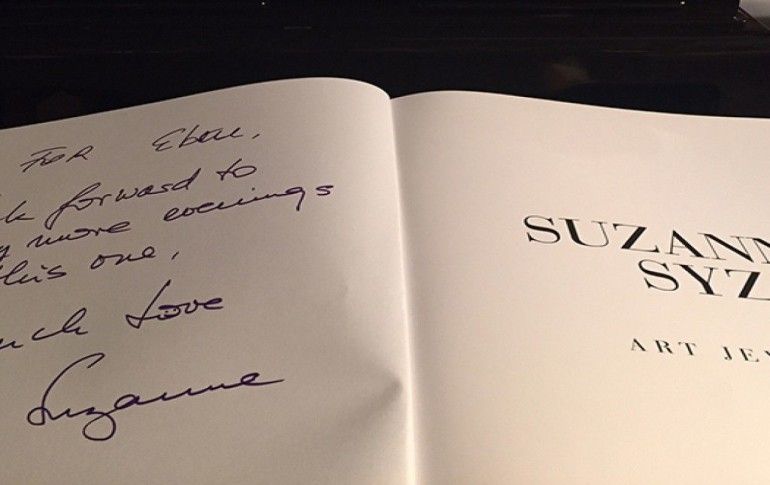 FOR Eboll,
k forward to
y more evenings
this one,
uch Love
Suzanne
SUZANN
SYZ
ART JEW